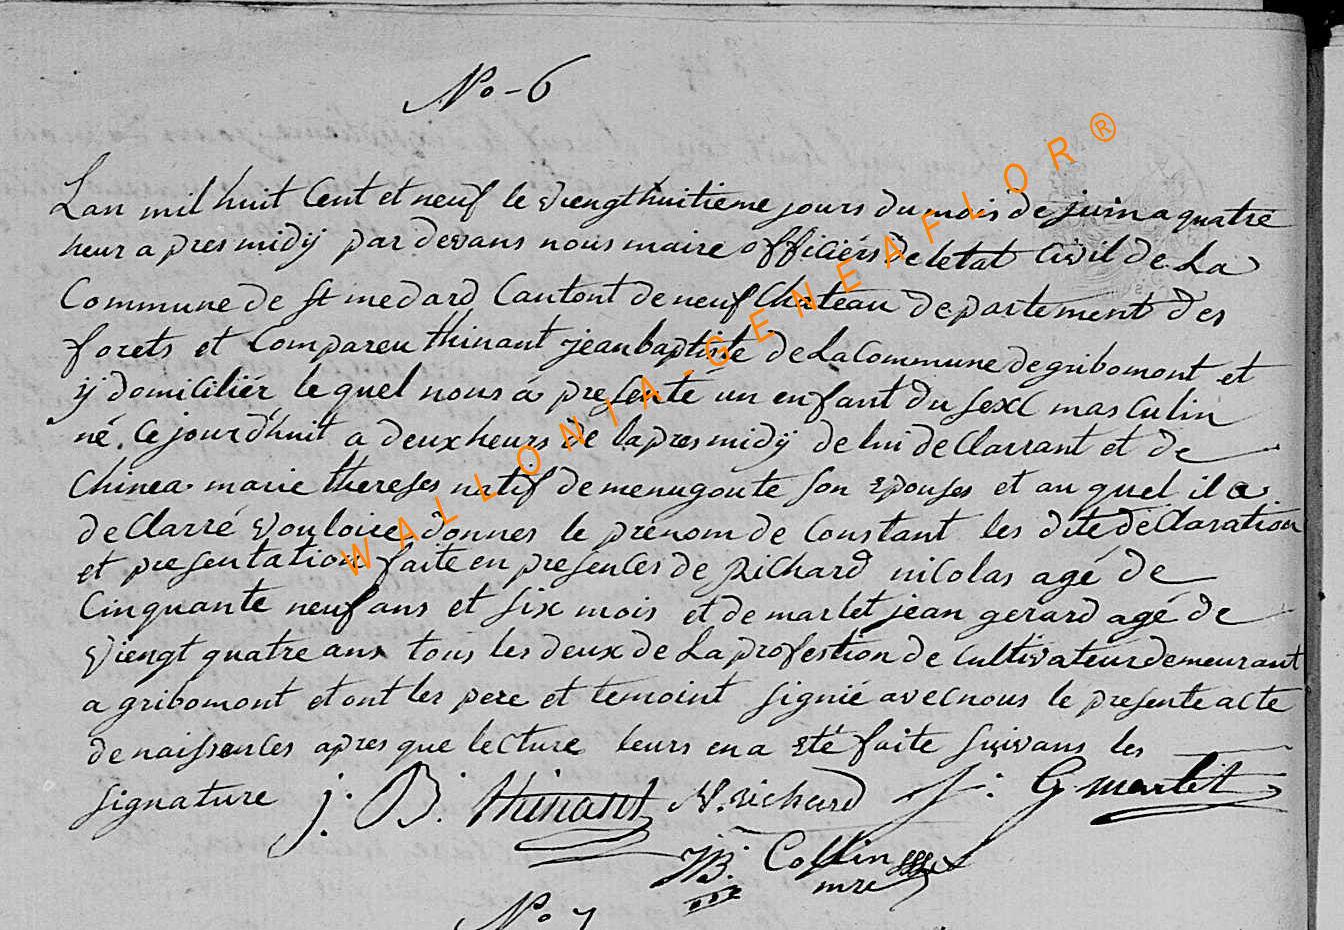 No - 6
Lan mil huit Cent et neuf le viengthuitieme jours du mois de juin a quatre
heur a pres midÿ par devans nous maire officiérs de letat Civil de La
Commune de St medard Cantont de neuf Chateau departement des
forets et Compareu thinant jeanbaptiste de La Commune de gribomont et
ÿ domiciliér le quel nous á presenté un enfant du sexe masculin
né. Ce jourd'huit a deux heurs de lapres midÿ de lui deClarrant et de
Chinea. marie thereses natif de menugoute son epouses et au quel il a
deClarré vouloire donnes le prénom de Constant les dite déClaration
et presentation faite en presences de Richard nicolas agé de
Cinquante neuf ans et six mois et de martet jean gerard agé de
viengt quatre ans tous les deux de La profestion de Cultivateur demeurant
a gribomont et ont les pere et temoint signié avec nous le presente acte
de naissances apres que lecture leurs en a eté faite suivans les
signature j. B. thinant N. richard J: G martet
JB. Collin
mre
No 7
WALLONIA-GENEAFLOR®